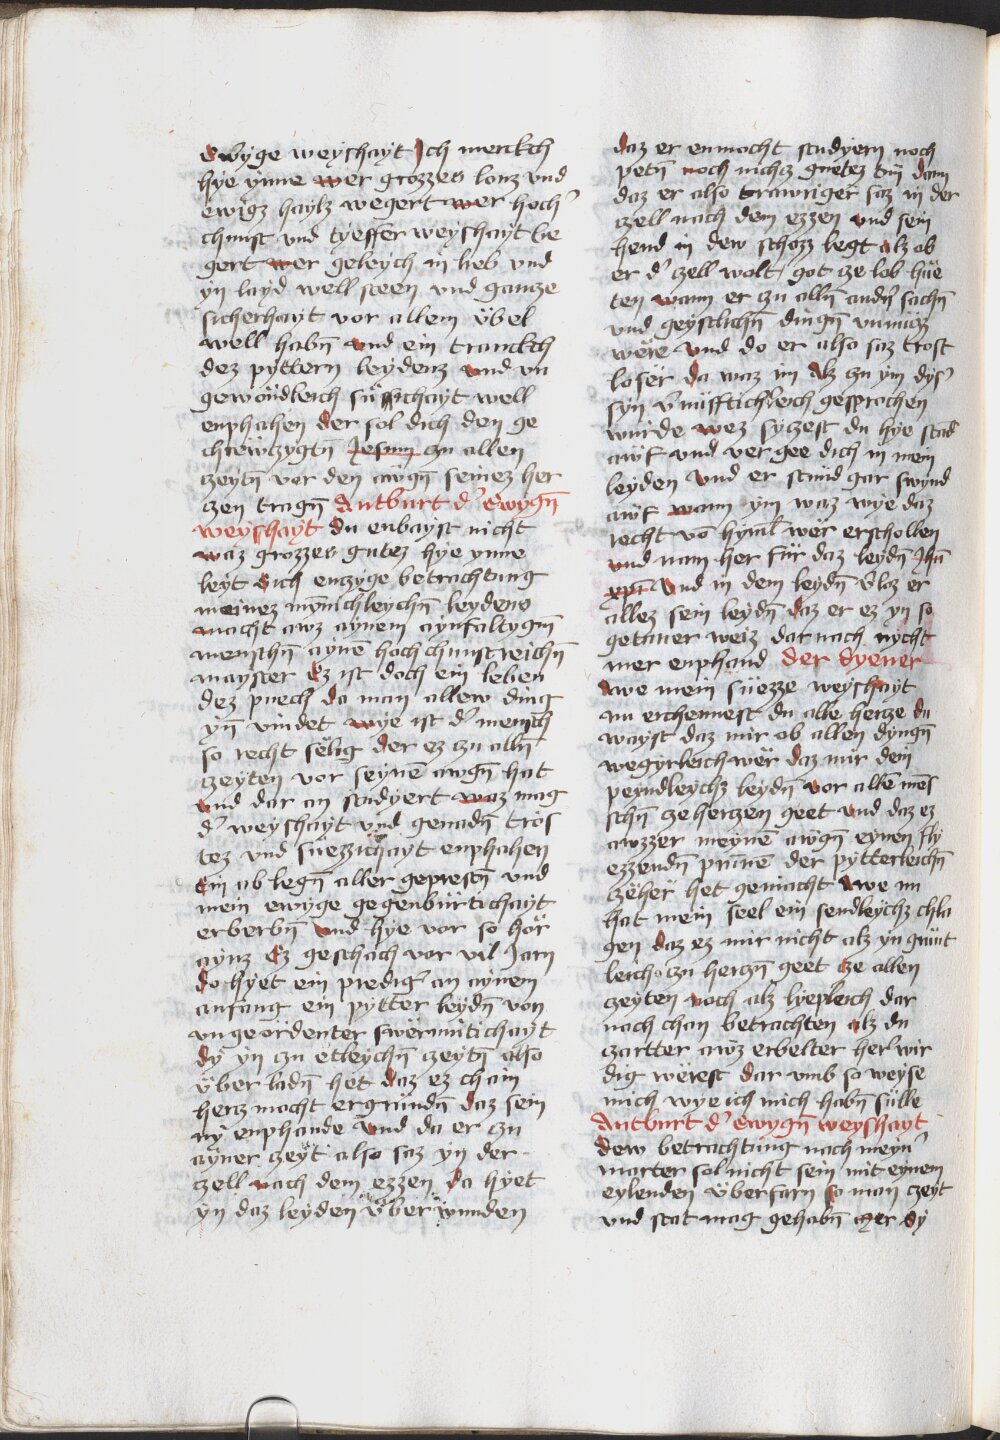 ewyge weyshayt Jch merckch
hye ynne wer grozzes lonz vnd
ewigz haylz wegert wer hoch᾽
chunst vnd tyeffer weyshayt be
gert wer geleych in lieb vnd
yn layd well steen vnd gancze
sicherhayt vor allem übel
well habn̄ vnd ein tranckch
dez pyttern leydenz vnd vn
gewöndleich süssichayt well
enphahen der sol dich den ge
chrewczygtn̄ Jesum zu allen
czeytn̄ vor den awgn̄ seinez her
czen tragn̄ Antburt d᾽ ewygn̄
weyshayt du enbayst nicht
waz grozzes gutez hye ynne
leyt Sich enczyge betrachtung
meinez mynnichleychn̄ leydens
macht awz aynem aynfaltygm̄
menschn̄ aynē hoch chunstreichn̄
mayster Ez ist doch ein leben
dez puech da man allew ding
yn̄ vindet wye ist d᾽ mensch
so recht sëlig der ez zu alln̄
czeyten vor seynē awgn̄ hat
vnd dar an studyert waz mag
d᾽ weyshayt vnd genadn̄ trös
tez vnd süezzichayt enphahen
Ein ab legn̄ aller geprestn̄ vnd
mein ewyge gegenbürtichayt
erberbn̄ Vnd hye vor so hör
aynz Ez geschach vor vil Jarn
do hyet ein predig᾽ an aynem
anfang ein pytter leydn̄ von
vngeordenter swërmütichayt
dÿ yn zu etleychn̄ czeytn̄ also
über ladn̄ het daz ez chain
hercz mocht ergründn̄ daz sein
nÿ enphande Vnd da er zu
ayner czeyt also saz yn der
czell nach dem ezzen da hyet
yn daz leyden überwunden
daz er enmocht studyern noch
petn̄ noch nichcz guetez tün dann
daz er also trawriger saz in der
czell nach dem ezzen vnd sein
hend in dew schozz legt alz ob
er d᾽ czell wolt got ze lob hüe
ten wann er zu alln̄ andn̄ sachn̄
vnd geystlichn̄ dingn̄ vnnücz
wëre Vnd do er also saz trost
losër da waz im Alz zu ym dys᾽
syn v᾽nüfftichleich gesprochen
wurde wez syczest du hye stand
awf vnd vergee dich in mein
leyden Vnd er stuend gar swynd
awf wann ym waz wye daz
recht vō hyml wër erschollen
vnd nam her für daz leydn̄ Jhū
xpī Vnd in dem leydn̄ v᾽loz er
allez sein leydn̄ daz er ez yn so
getaner weiz dar nach nycht
mer enphand der dyener
Awe mein süezze weyshayt
nu erchennest du alle hercze du
wayst daz mir ob allen dyngn̄
wegyrleich wër daz mir dein
peyndleychz leydn̄ vor allē mēs
schn̄ ze herczen geet vnd daz ez
awzzer meynē awgn̄ eynen fly
ezzendn̄ prunnē der pytterleichn̄
czëher het gemacht Awe nu
hat mein seel ein sendleychz chla
gen daz ez mir nicht alz yn grünt
leich zu herczn̄ geet cze allen
czeyten noch alz lyepleich dar
nach chan betrachten alz du
czartter awz erbelter her wir
dig wërest dar vmb so weyse
mich wye ich mich habn̄ sülle
Antburt d᾽ ewygn̄ weyshayt
dew betrachtung nach meyn᾽
marter sol nicht sein mit eynem
eylenden überfarn so man czeyt
vnd stat mag gehabn̄ mer dÿ